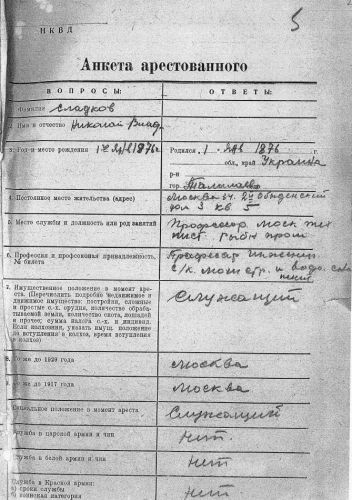 5
НКВД
Анкета арестованного
ВОПРОСЫ:
ОТВЕТЫ:
Фамилия Сладков
2. Имя и отчество Николай Влад.
3. Год и место рождения
Родился 1 1876 г.
обл., край Украина
р-н
гор.
4. Постоянное место жительства (адрес)
Москва
дом 3 кв. 5
5. Место службы и должность или род занятий
Профессор Моск.
6. Профессия и профсоюзная принадлежность, № билета
7. Имущественное положение в момент ареста. (Перечислить подробно недвижимое и движимое имущество: постройки, сложные и простые с.-х. орудия, количество обрабатываемой земли, количество скота, лошадей и прочее; сумма налога с.-х. и индивид. Если колхозник, указать имущ. положение до вступления в колхоз, время вступления в колхоз)
Служащий
8. То же до 1929 года
Москва
То же до 1917 года
Москва
Социальное положение в момент ареста
Служащий
Служба в царской армии и чин
Нет.
Служба в белой армии и чин
Нет
Служба в Красной армии:
а) сроки службы
б) военная категория
Нет